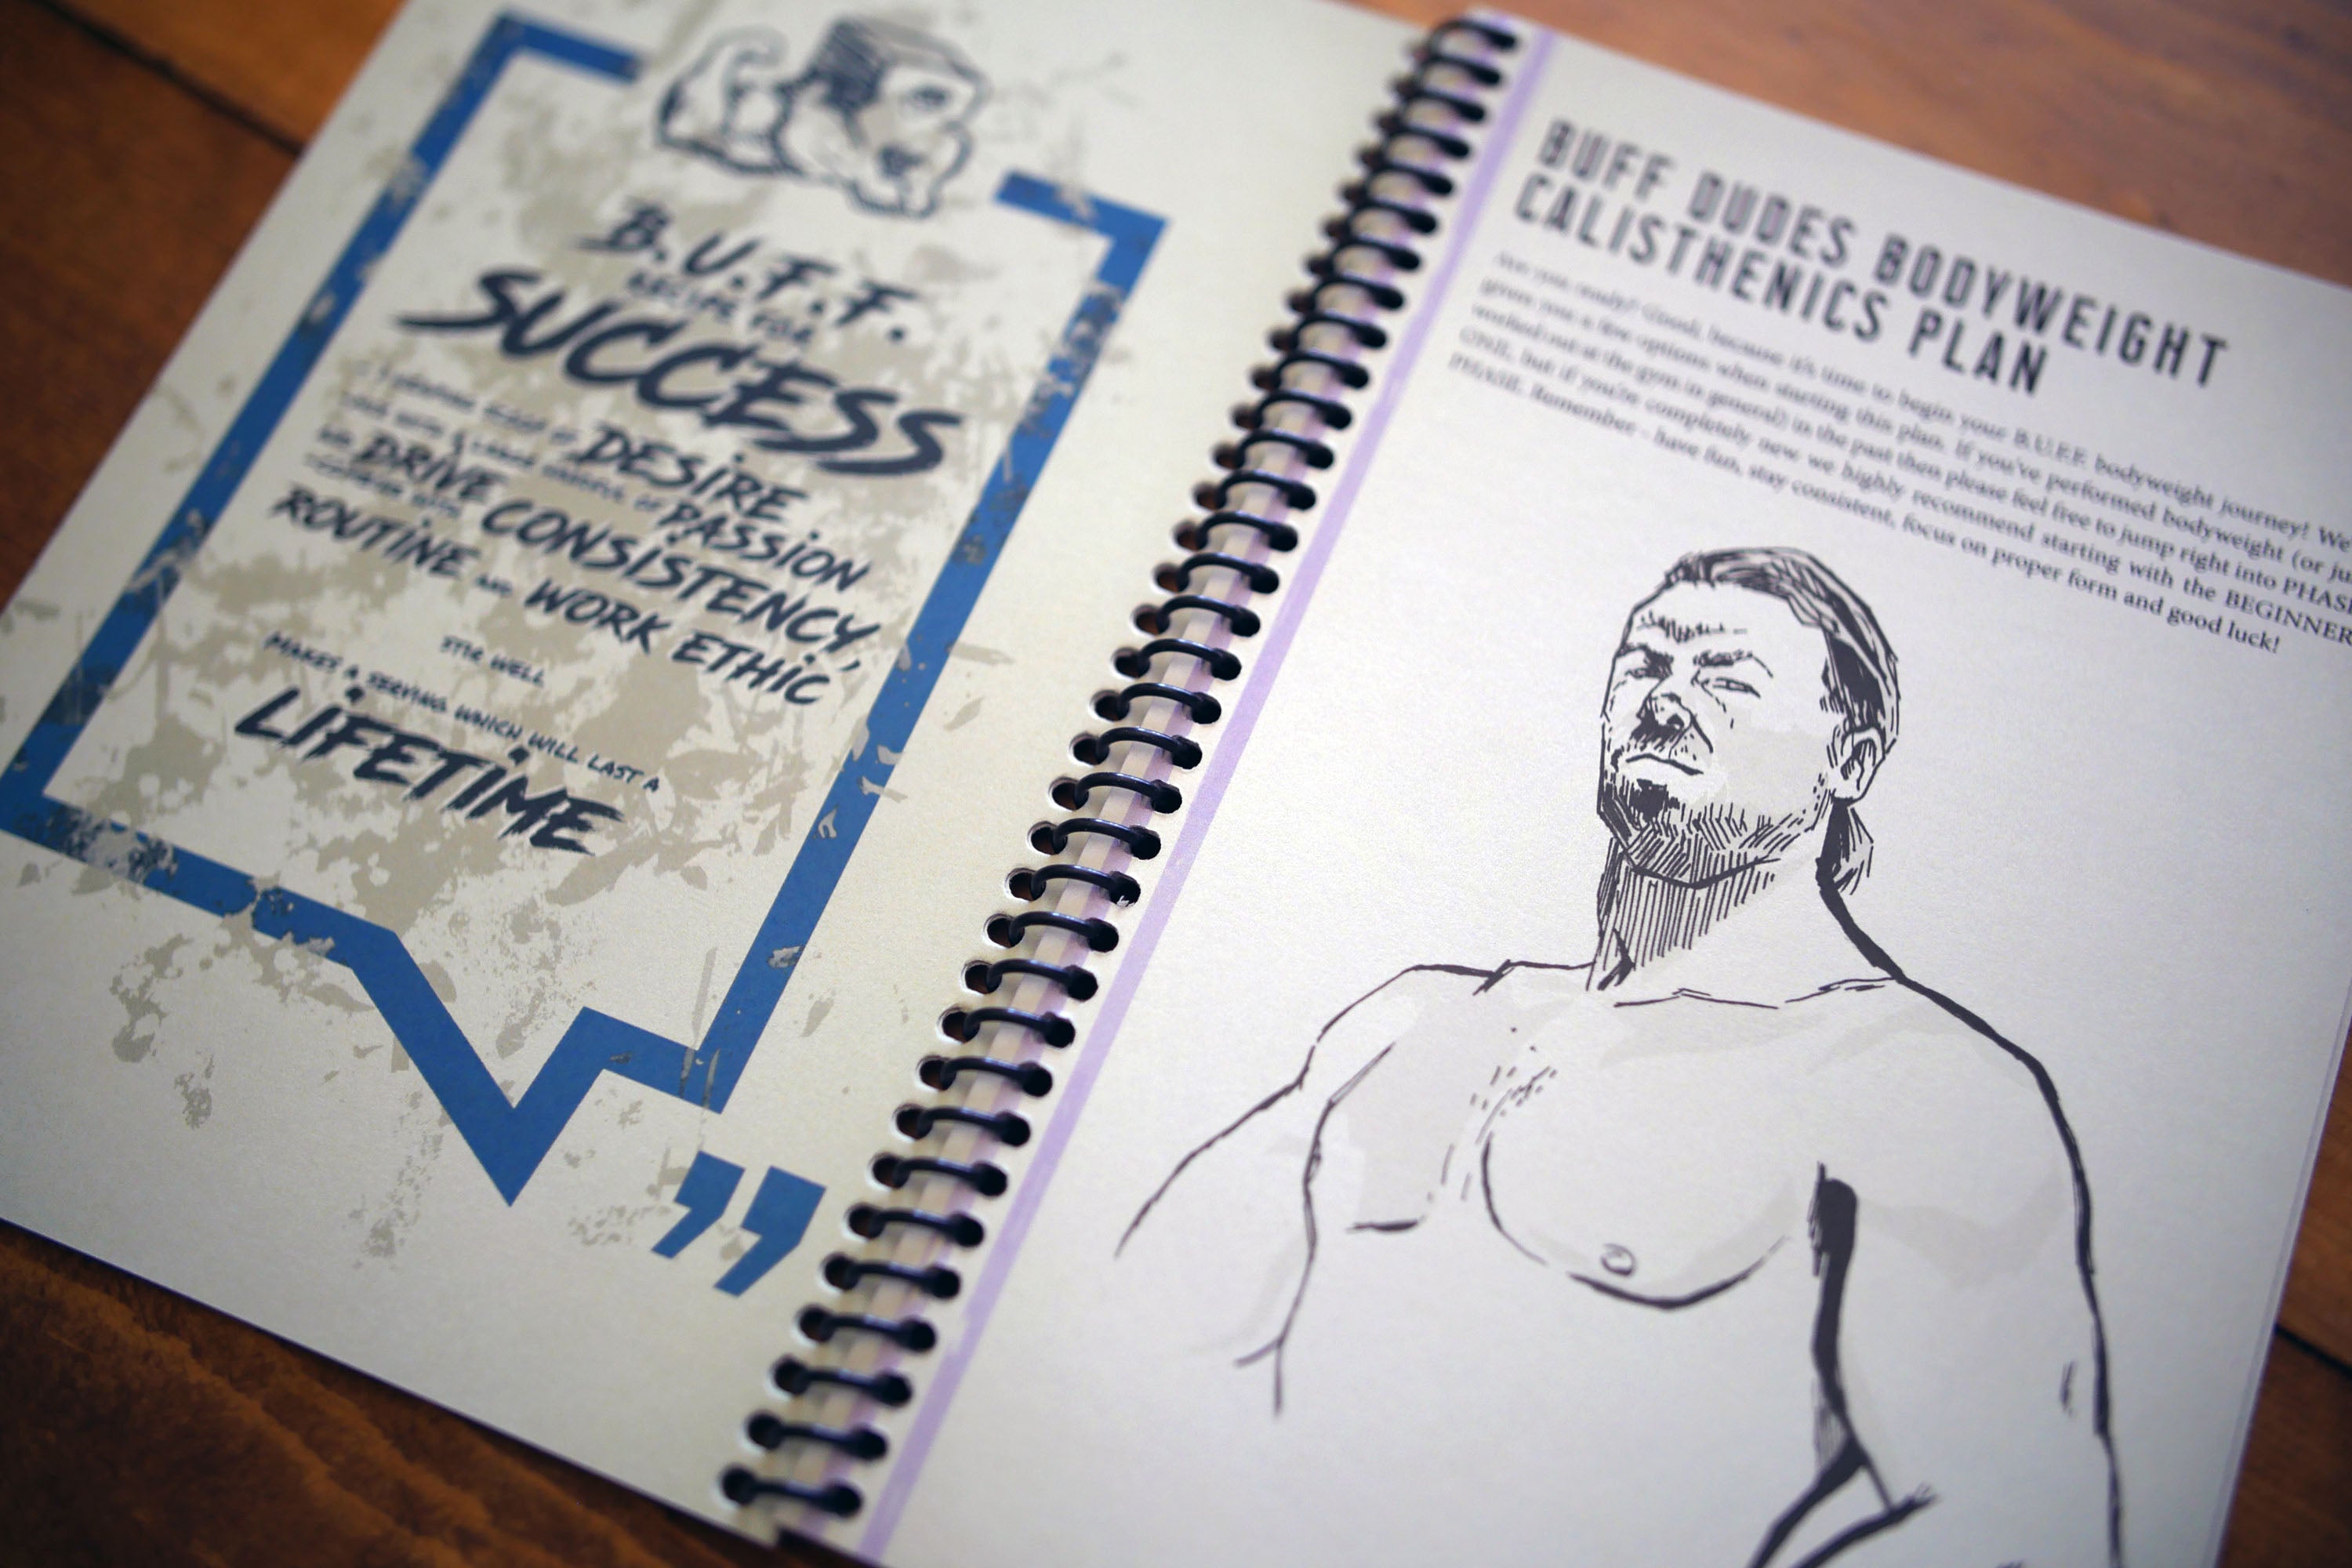 B.U.F.F.
RECIPE FOR
SUCCESS
OF DESIRE
PASSION
DRIVE CONSISTENCY,
ROUTINE AND WORK ETHIC
STIR WELL
MAKES A SERVING WHICH WILL LAST A
LIFETIME
”
BUFF DUDES BODYWEIGHT
CALISTHENICS PLAN
Are you ready? Good, because it's time to begin your B.U.F.F. bodyweight journey! We
given you a few options when starting this plan. If you've performed bodyweight (or ju
worked out at the gym in general) in the past then please feel free to jump right into PHASE
ONE, but if you're completely new we highly recommend starting with the BEGINNER
PHASE. Remember - have fun, stay consistent, focus on proper form and good luck!